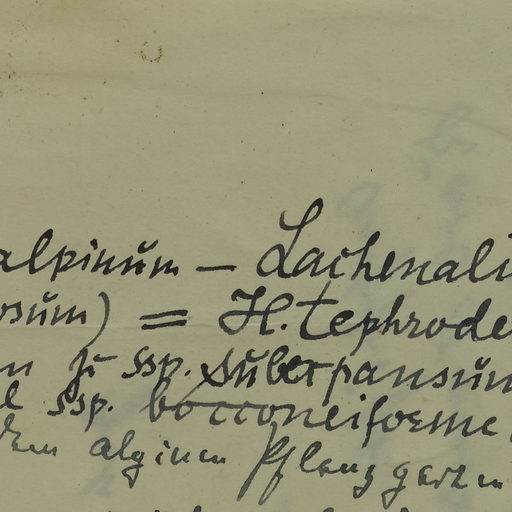 alpinum – Lachenali
osum) = H. tephrode
n zu ssp. suberpansum
l ssp. bocconeiforme
dem alpinen Pflanzgarten